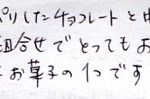 パリしたチョコレートと中
組合せでとってもお
お菓子の1つです